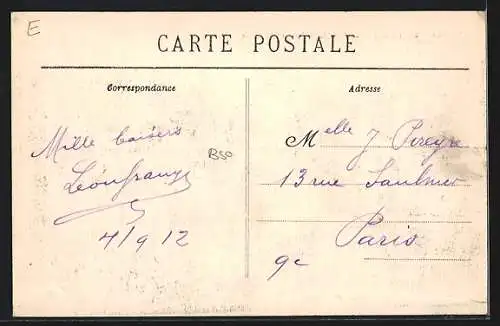 E
CARTE POSTALE
Correspondance
Adresse
Mille baisers
B50
4/9 12
Melle J Pereyre
13 rue Saulnier
Paris
9e